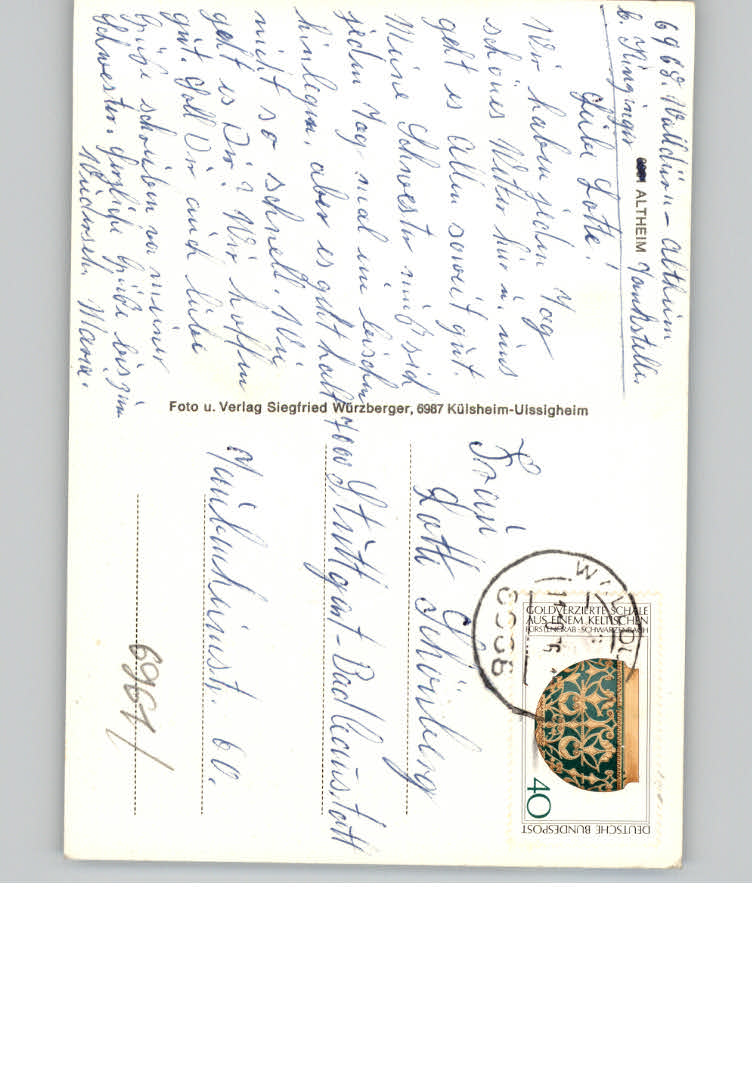 6968 Walldürn-Altheim
b. Kinzinger Tankstelle
ALTHEIM
Liebe Lotte!
Wir haben jeden Tag
schönes Wetter hier u. uns
geht es allen soweit gut.
Meine Schwester muß sich
jeden Tag mal ein bischen
hinlegen, aber es geht halt
nicht so schnell. Wie
geht es Dir? Wir hoffen
gut. Soll Dir auch liebe
Grüße schreiben von meiner
Schwester. Herzliche Grüße bis zum
Wiederseh. Maria.
Foto u. Verlag Siegfried Würzberger, 6987 Külsheim-Uissigheim
Frau
Lotte Schönberg
7000 Stuttgart-Bad Cannstatt
60.
6961/
GOLDVERZIERTE SCHALE
AUS EINEM KELTISCHEN
FÜRSTENGRAB · SCHWARZENBACH
40
DEUTSCHE BUNDESPOST